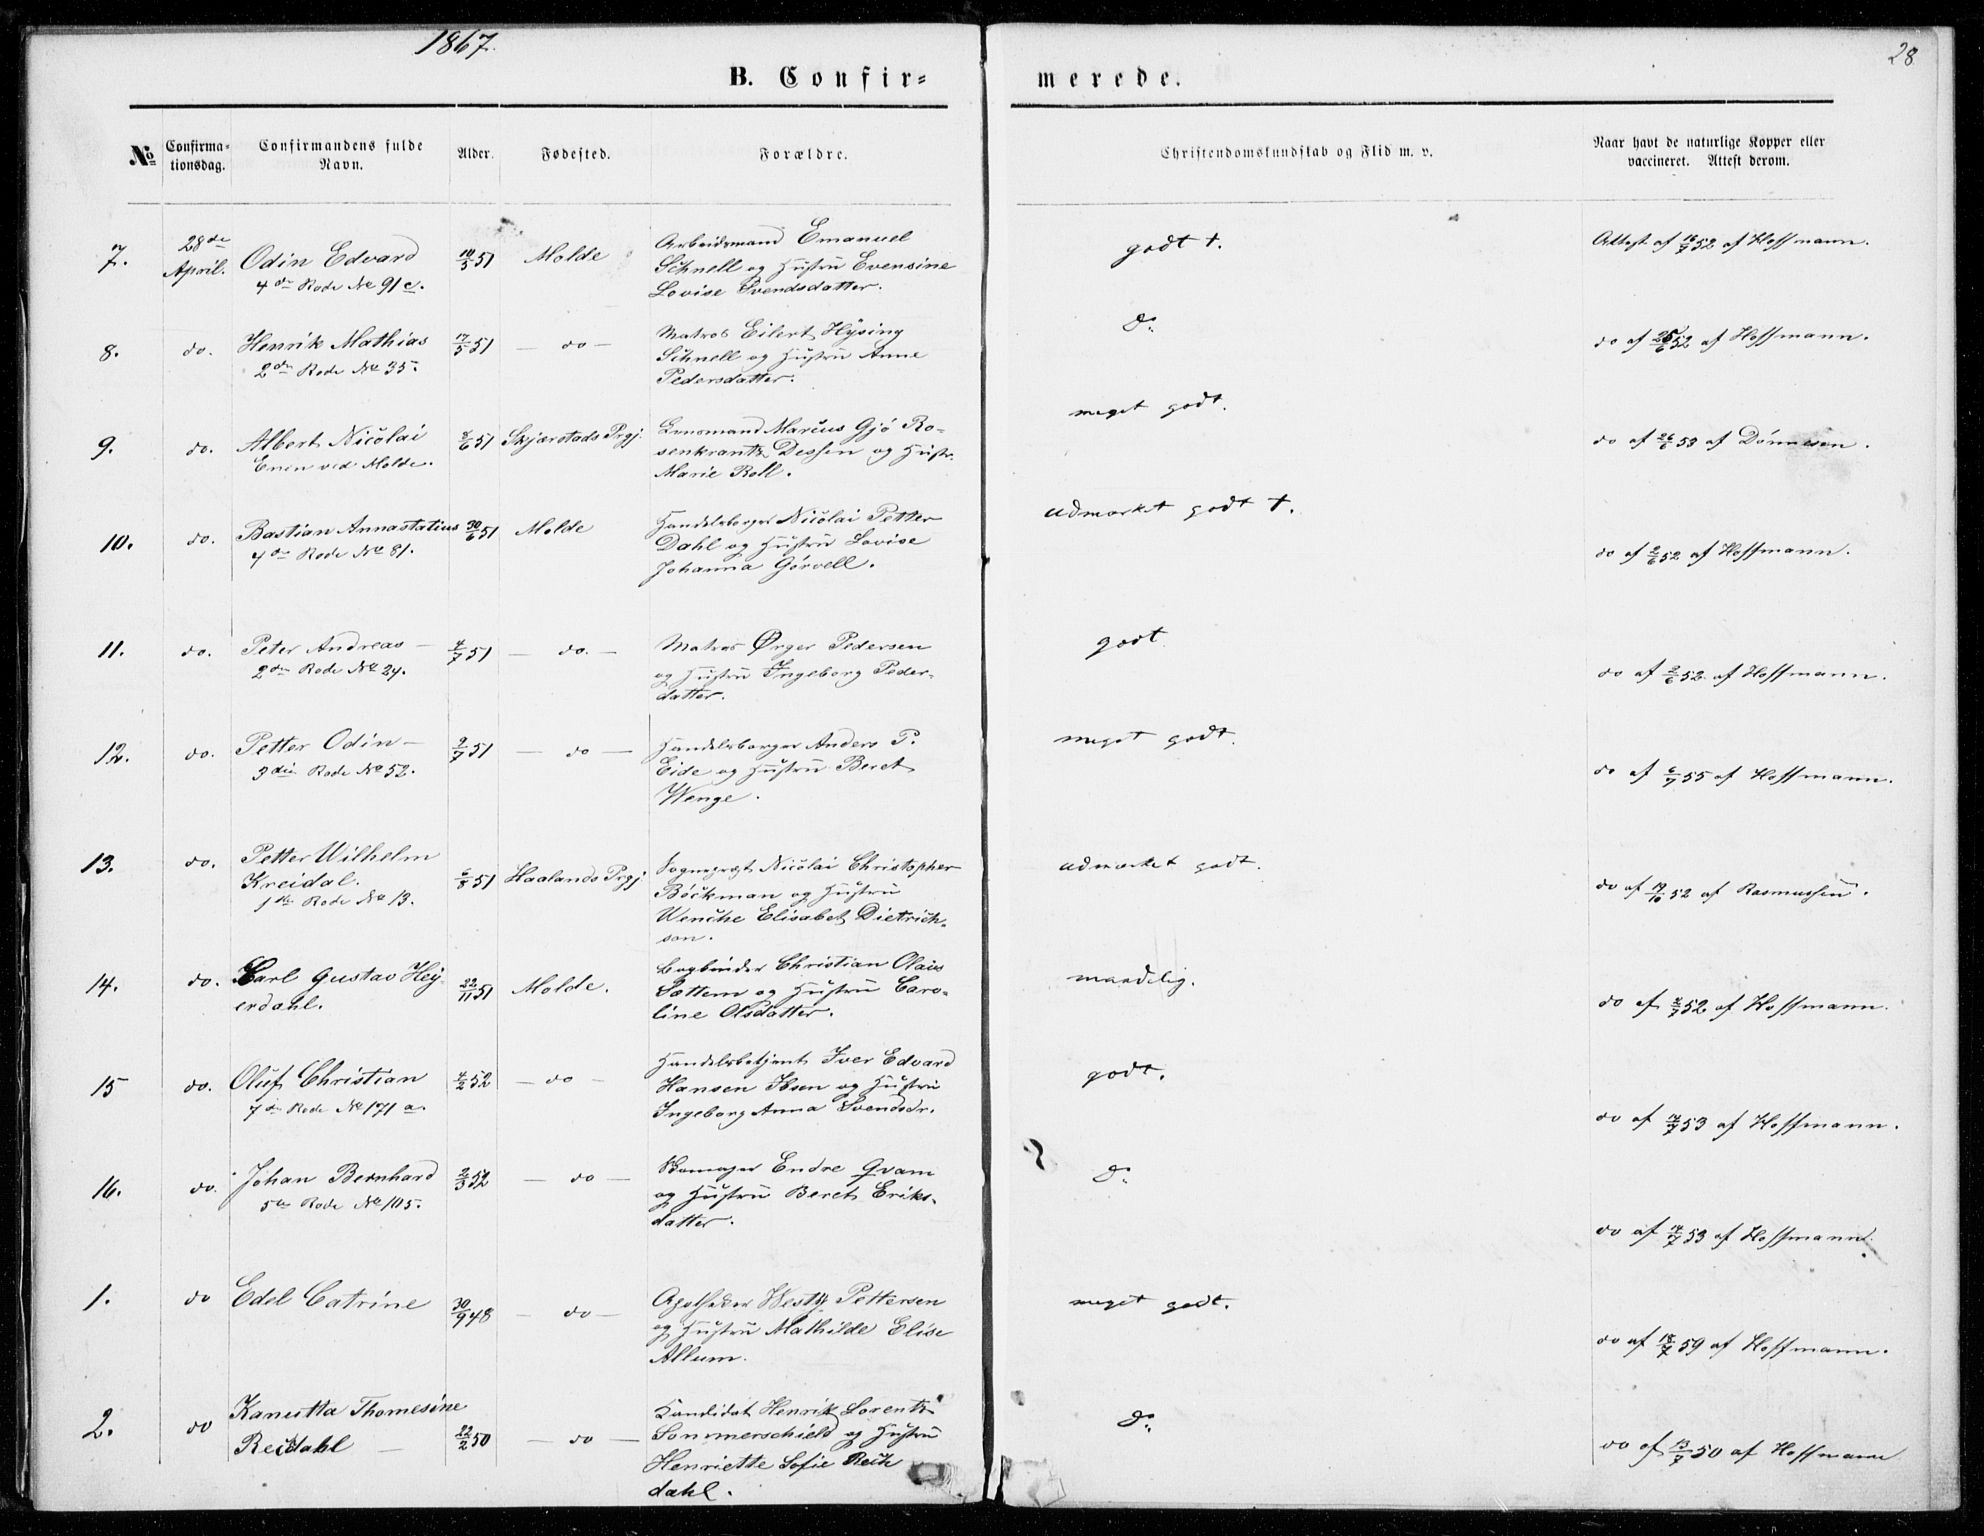 1867.
28
B. Confir= merede.
No
Confirma=
tionsdag.
Confirmandens fulde
Navn.
Alder.
Fødested.
Forældre.
Christendomskundskab og Flid m. v.
Naar havt de naturlige Kopper eller
vaccineret. Attest derom.
7. 28de April. Odin Edvard 4de Rode No 91 c. 51 Molde
Arbeidsmand Emanuel
Schnell og Hustru Evensine
Lovise Svendsdatter.
godt †.
Attest af 52 af Hoffmann.
8. do. Henrik Mathias 2den Rode No 35. 17/5 51 — do —
Matros Eilert Hysing
Schnell og Hustru Anne
Pedersdatter.
Do
do af 52 af Hoffmann.
9. do. Albert Nicolai ved Molde. 51 Skjærstads Prgj.
Lensmand Marcus Gjø Ro=
senkrantz Dessen og Hustr.
Marie Roll.
meget godt.
do af 26/6 53 af Dønnesen.
10. do. Bastian Annastatius 4de Rode No 81. 30/6 51 Molde
Handelsborger Nicolai Petter
Dahl og Hustru Lovise
Johanna Gørvell.
udmærket godt †.
do af 2/6 52 af Hoffmann.
11. do. Peter Andreas — 2den Rode No 24. 4/7 51 — do. —
Matros Ørger Pedersen
og Hustru Ingeborg Peder=
datter.
godt
do af 2/6 52 af Hoffmann.
12. do. Petter Odin — 3die Rode No 52. 9/7 51 — do —
Handelsborger Anders P.
Eide og Hustru Beret
Wenge.
meget godt.
do af 6/7 55 af Hoffmann.
13. do. Petter Wilhelm
Kreidal.
1ste Rode No 13. 6/8 51 Haalands Prgj.
Sogneprest Nicolai Christopher
Böckman og Hustru
Wenche Elisabet Dietrich=
son.
udmærket godt.
do af 19/10 52 af Rasmussen.
14. do. Carl Gustav Hey=
erdahl. 22/11 51 Molde.
Bogbinder Christian Olaus
Sættem og Hustru Caro=
line Olsdatter.
maadelig.
do af 52 af Hoffmann.
15 do. Oluf Christian 7de Rode No 171 a. 4/2 52 — do —
Handelsbetjent Iver Edvard
Hansen Ibsen og Hustru
Ingeborg Anna Svendsdr.
godt.
do af 53 af Hoffmann.
16. do. Johan Bernhard 5te Rode No 105. 2/3 52 — do —
Endre Qvam
og Hustru Beret Eriks=
datter.
Do
do af 53 af Hoffmann.
1. do Edel Catrine 30/9 48 — do —
Apotheker Westy Pettersen
og Hustru Mathilde Elise
Allum.
meget godt.
do af 18/7 59 af Hoffmann.
2. do Kanutta Thomesine
Reitdahl — 22/2 50 — do —
Kandidat Henrik Lorentz
Sommerschield og Hustru
Henriette Sofie Reit
dahl.
Do
do af 13/7 50 af Hoffmann